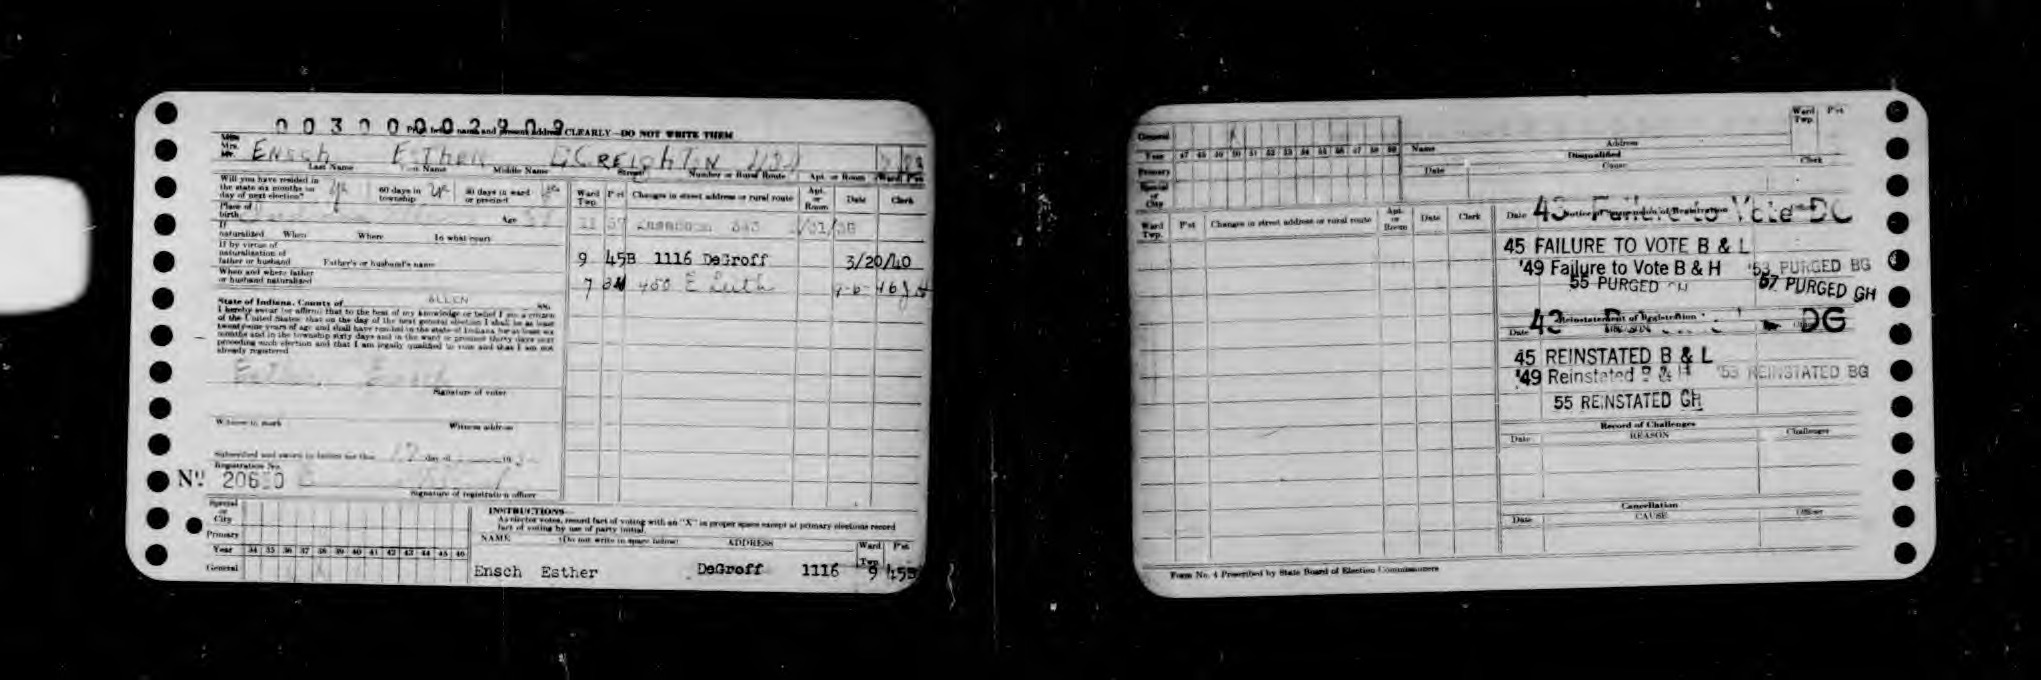 0030002909
Print both name and present address CLEARLY—DO NOT WRITE THEM
Miss
Mrs.
Mr. ENSCH ESTHER CREIGHTON
Last Name First Name Middle Name Street Number or Rural Route Apt. or Room Ward Pct
Will you have resided in
the state six months on
day of next election? yes 60 days in township yes 30 days in ward or precinct yes
Place of
birth Age
If
naturalized When Where In what court
If by virtue of
naturalization of
father or husband Father's or husband's name
When and where father
or husband naturalized
State of Indiana, County of ALLEN ss.
I hereby swear (or affirm) that to the best of my knowledge or belief I am a citizen
of the United States; that on the day of the next general election I shall be at least
twenty-one years of age and shall have resided in the state of Indiana for at least six
months and in the township sixty days and in the ward or precinct thirty days next
preceding such election and that I am legally qualified to vote and that I am not
already registered
Esther Ensch
Signature of voter
Witness to mark Witness address
Subscribed and sworn to before me this 17 day of 19
Registration No.
No
Signature of registration officer
Ward Twp. Pct Changes in street address or rural route Apt. or Room Date Clerk
9 45B 1116 DeGroff 3/20/40
7 450 E
Special
or
City
Primary
Year 34 35 36 37 38 39 40 41 42 43 44 45 46
General
INSTRUCTIONS
As elector votes, record fact of voting with an "X" in proper space except at primary elections record
fact of voting by use of party initial.
NAME (Do not write in space below) ADDRESS Ward Twp. Pct
Ensch Esther DeGroff 1116 9 45B
General X
Year 47 48 49 50 51 52 53 54 55 56 57 58 59
Primary
Special
or
City
Name Address Ward Twp. Pct
Disqualified
Date Cause Clerk
Ward Twp. Pct Changes in street address or rural route Apt. or Room Date Clerk
Date Notice of Suspension of Registration
43 Failure to Vote-DG
45 FAILURE TO VOTE B & L
'49 Failure to Vote B & H '53 PURGED BG
55 PURGED GH 57 PURGED GH
Reinstatement of Registration
Date 43 REASON DG
45 REINSTATED B & L
'49 Reinstated B & H '53 REINSTATED BG
55 REINSTATED GH
Record of Challenges
Date REASON Challenger
Cancellation
Date CAUSE Officer
Form No. 4 Prescribed by State Board of Election Commissioners